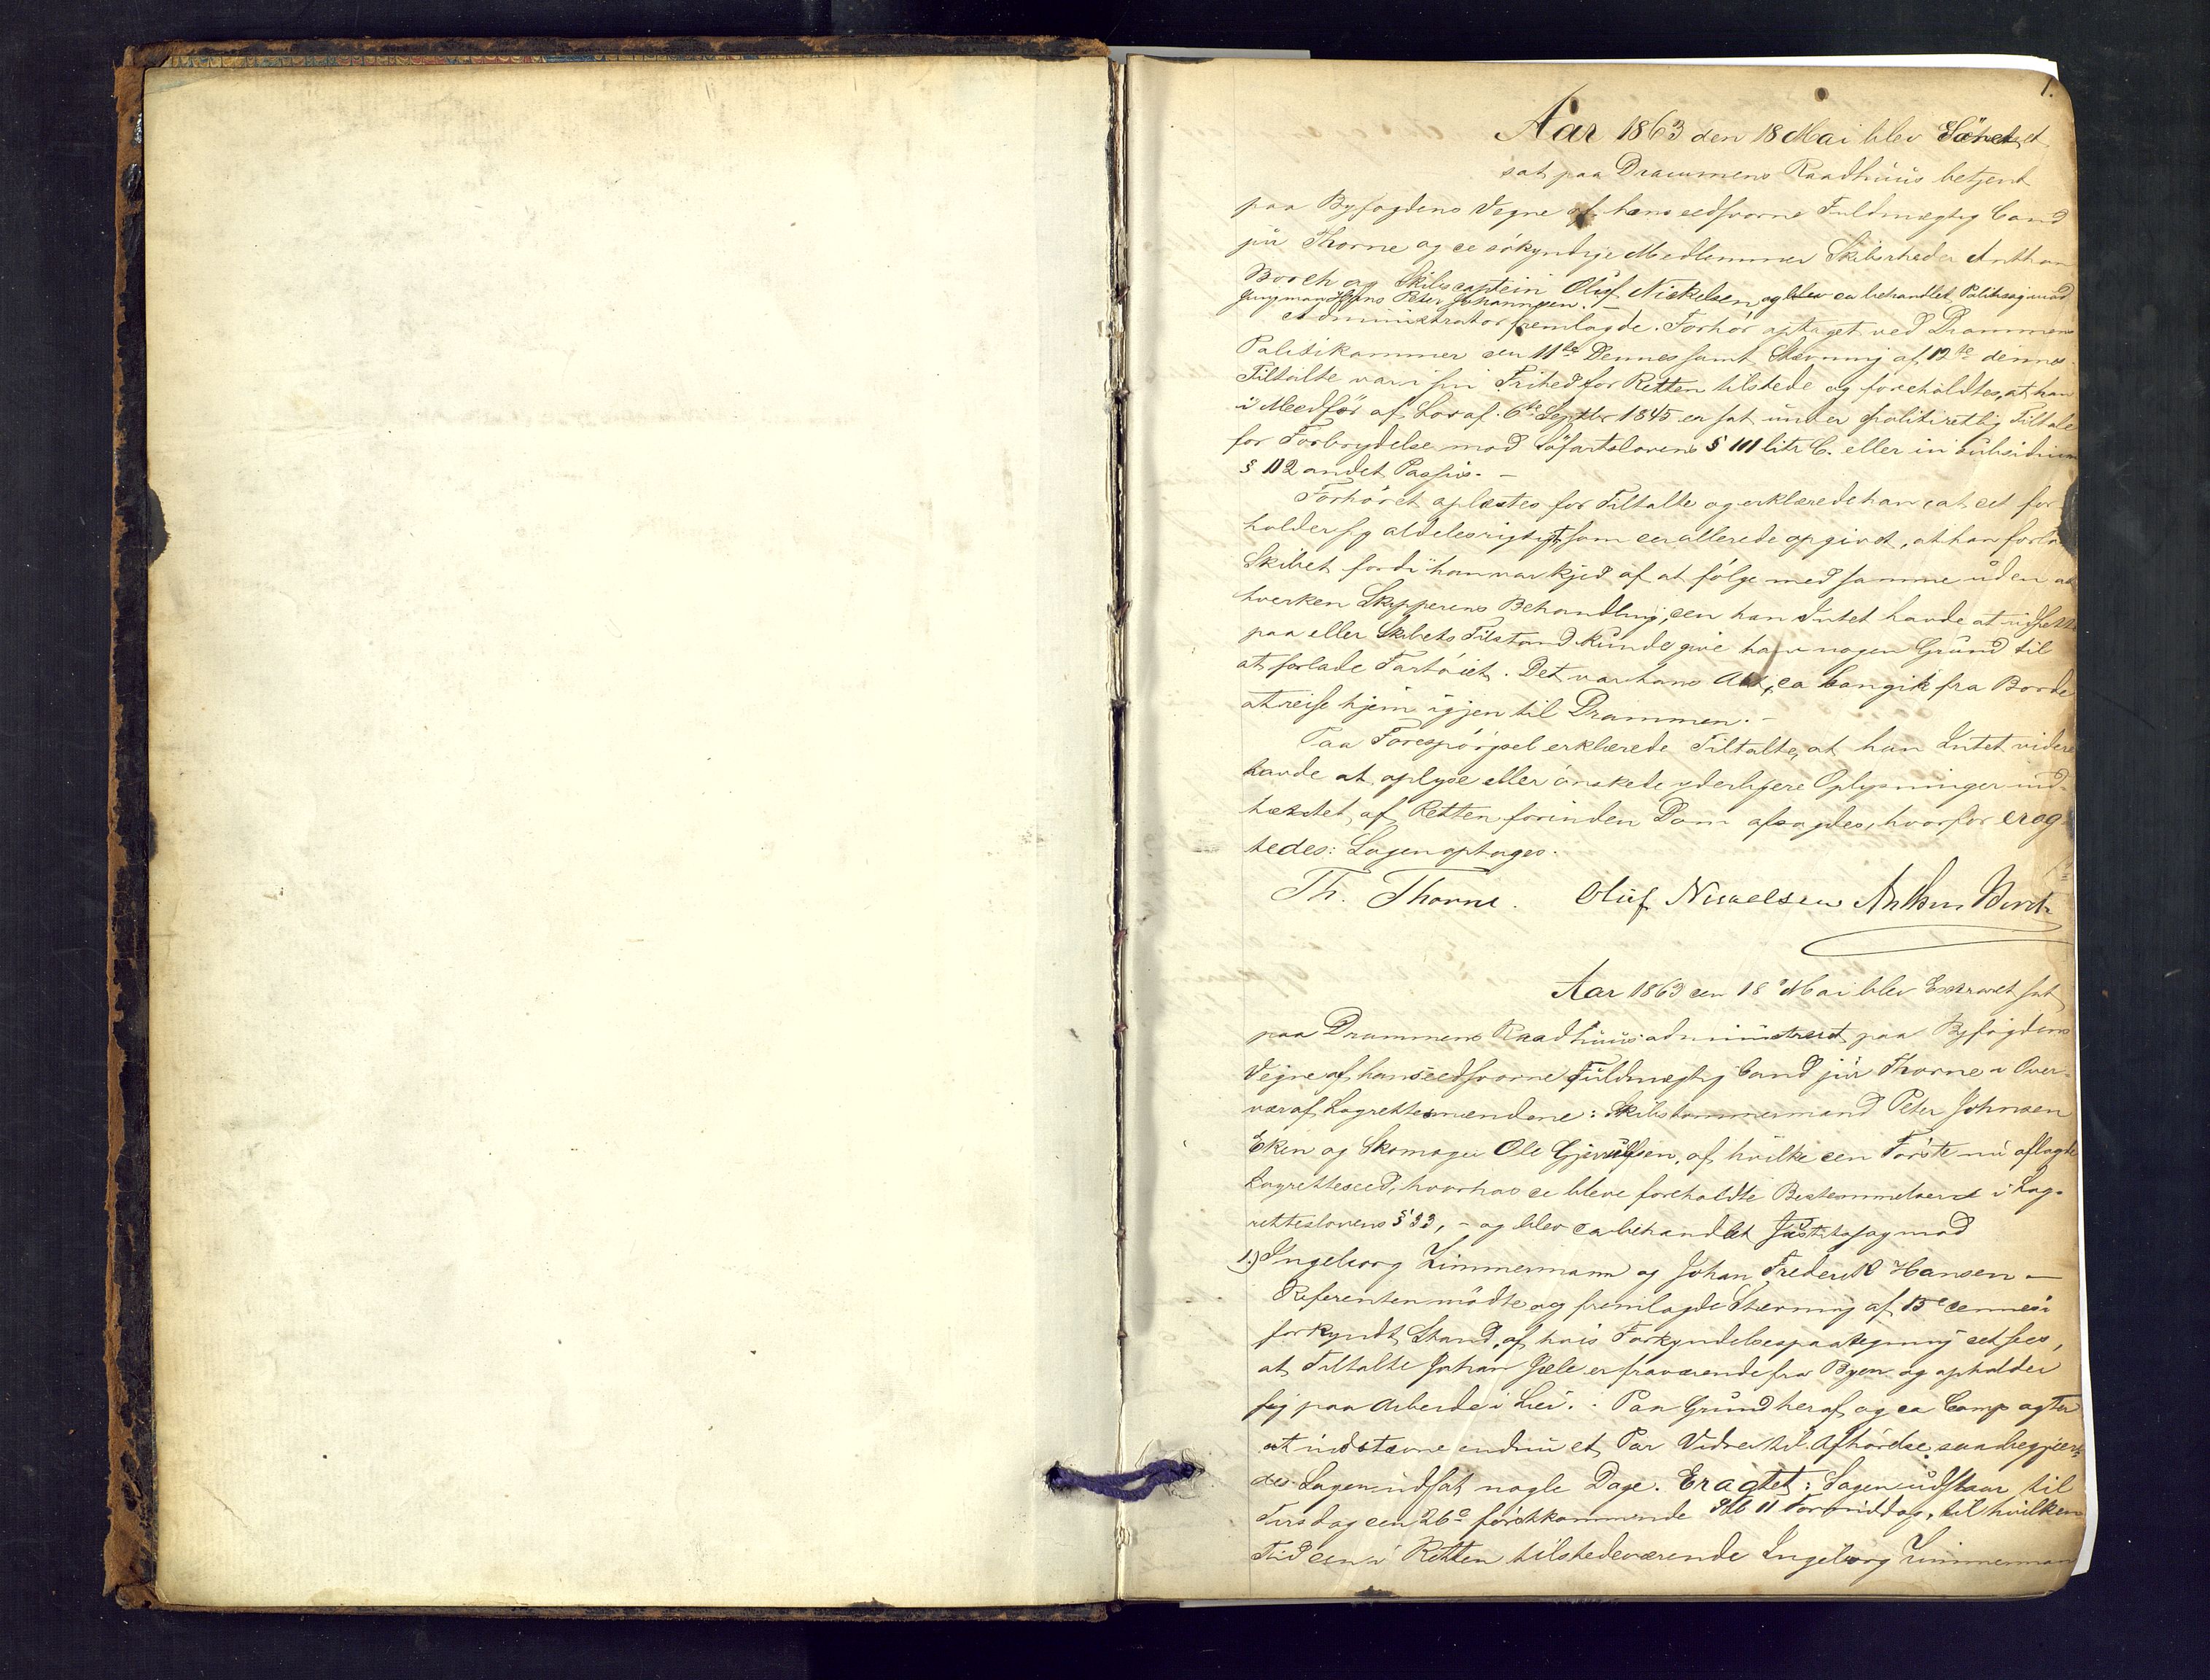 1.
Aar 1863 den 18 Mai blev Söret et
sat paa Drammens Raadhuus betjent
paa Byfogdens Vegne af hans edsvorne Fuldmægtig Cand
jur Thorne og de sökyndige Medlemmer Skibsrheder Anthon
Borch og Skibscaptein Oluf Nickelsen og blev da behandlet Politisag mod
Jungmand Hans Peter Johannsen. —
Administrator fremlagde. Forhör optaget ved Drammens
Politikammer den 11te Dennes samt Stævning af 12te dennes.
Tiltalte var i sin Frihed for Retten tilstede og foreholdtes, at han
i Medför af Lov af 6te Septbr 1845 er sat under politiretlig Tiltale
for Forbrydelse mod Söfartslovens § 111 litr C. eller in subsidium
§ 112 andet Passus. —
Forhöret oplæstes for Tiltalte og erklærede han, at det for-
holder sig aldeles rigtigt som der allerede opgivet, at han forlod
Skibet fordi han var kjed af at fölge med samme uden at
hverken Skipperens Behandling, den han Intet havde at udsætte
paa eller Skibets Tilstand kunde give ham nogen Grund til
at forlade Fartöiet. Det var hans Agt, da han gik fra Borde
at reise hjem igjen til Drammen. —
Paa Forespörgsel erklærede Tiltalte, at han Intet videre
havde at oplyse eller önskede yderligere Oplysninger ind-
hæntet af Retten forinden Dom afsagdes, hvorfor erag-
tedes: Sagen optages.
Th. Thorne. Oluf Nickelsen Anthon Borch
Aar 1863 den 18 Mai blev Extraret sat
paa Drammens Raadhuus administreret paa Byfogdens
Vegne af hans edsvorne Fuldmægtig Cand jur Thorne i Over-
vær af Lagrettesmændene: Skibstømmermand Peter Johnsen
Eken og Skomager Ole Gjerulfsen, af hvilke den Förste nu aflagde
Lagretteseed, hvorhos de bleve foreholdte Bestemmelserne i Lag-
retteslovens § 33, – og blev da behandlet Justitssag mod
1.) Ingeborg Zimmermann og Johan Frederik Hansen —
Referenten mödte og fremlagde Stævning af 13de dennes i
forkyndt Stand, af hvis Forkyndelsespaategning det sees,
at Tiltalte Johan Jæle er fraværende fra Byen og opholder
sig paa Arbeide i Lier. Paa Grund heraf og da Comp agter
at indstævne endnu et Par Vidner til Afhörelse, saa begjær-
des Sagen udsat nogle Dage. Eragtet: Sagen udstaar til
Tirsdag den 26de förstkommende Kl 11 Formiddag, til hvilken
Tid den i Retten tilstedeværende Ingeborg Zimmermann